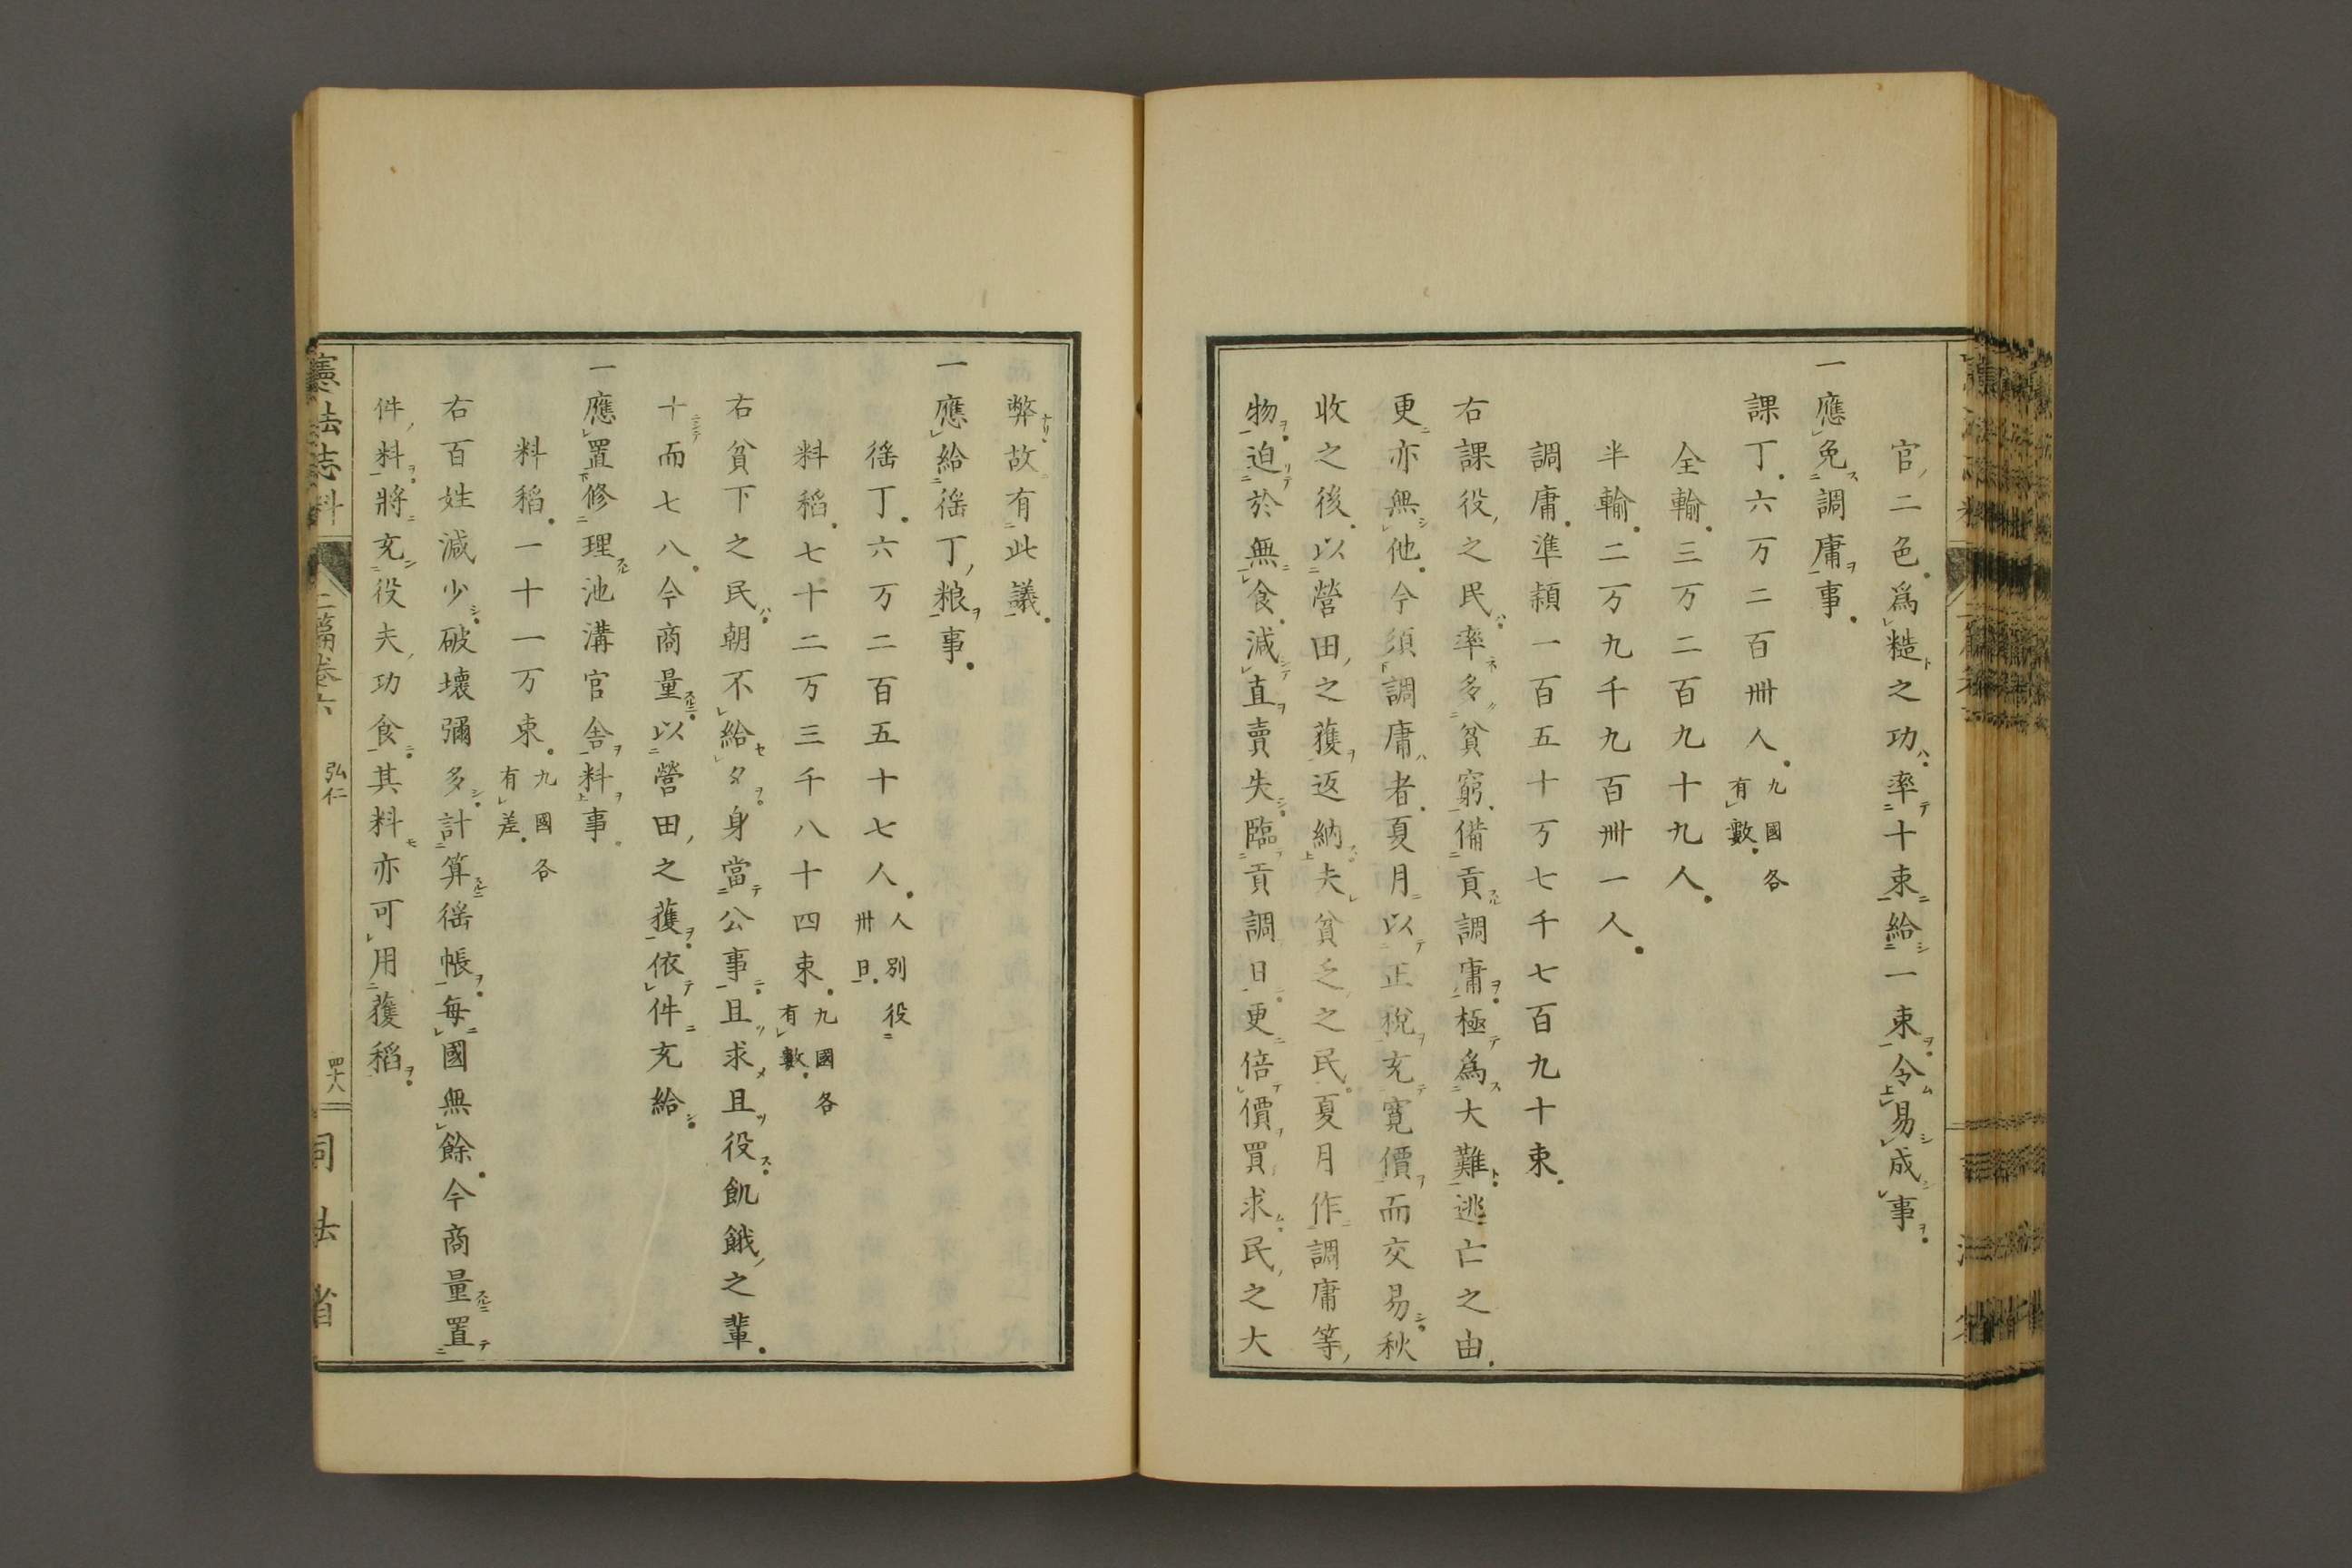 官二色爲糙之功率十束給一束令易成事
一應免調庸事
課丁六万二百卌人九國各有數
全輸三万二百九十九人
半輸二万九千九百卌一人
調庸準穎一百五十万七千七百九十束
右課役之民率多貧窮備貢調庸極爲大難逃亡之由
更亦無他今須調庸者夏月以正稅充寛價而交易秋
收之後以營田之穫返納夫貧乏之民夏月作調庸等
物迫於無食減直賣失臨貢調日更倍價買求民之大
弊故有此議
一應給徭丁粮事
徭丁六万二百五十七人人別役卌日
料稻七十二万三千八十四束九國各有數
右貧下之民朝不給夕身當公事且求且役飢餓之輩
十而七八今商量以營田之穫依件充給
一應置修理池溝官舎料事
料稻一十一万束九國各有差
右百姓減少破壞彌多計算徭帳每國無餘今商量置
件料將充役夫功食其料亦可用穫稻
憲法志料 二篇卷六 弘仁 四十八 司法省